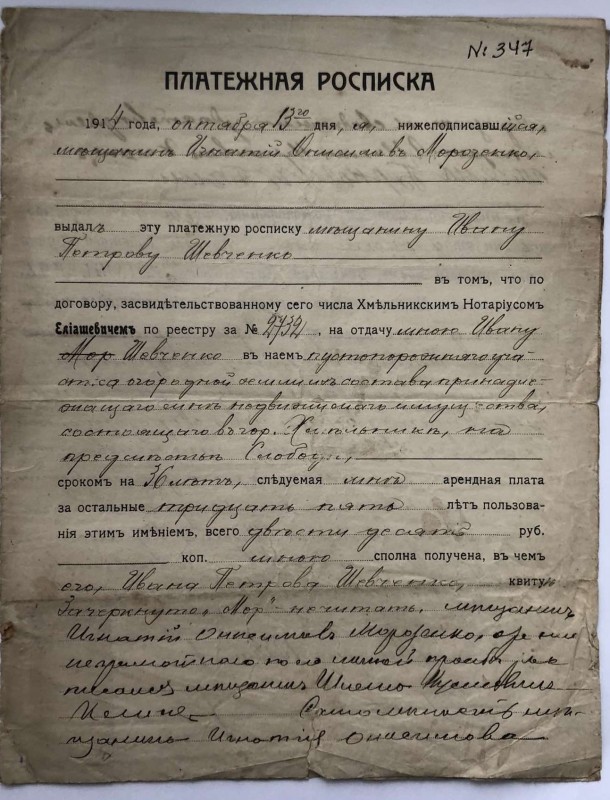 № 347
ПЛАТЕЖНАЯ РОСПИСКА
1914 года, октября 13го дня, я, нижеподписавшійся,
мѣщанинъ Игнатій Онисимовъ Морозенко,
выдалъ эту платежную росписку мѣщанину Ивану
Петрову Шевченко
въ томъ, что по
договору, засвидѣтельствованному сего числа Хмѣльникскимъ Нотаріусомъ
Еліашевичемъ по реестру за № 2732, на отдачу мною Ивану
Мор Шевченко въ наемъ пустопорожняго уча-
стка огородной земли изъ состава принадле-
жащаго мнѣ недвижимаго имуще-ства,
состоящаго въ гор. Хмѣльникѣ, на
предмѣстьѣ Слободѣ,
срокомъ на 36 лѣтъ, слѣдуемая мнѣ арендная плата
за остальные тридцать пять лѣтъ пользова-
нія этимъ имѣніемъ, всего двѣсти десять руб.
коп. мною сполна получена, въ чемъ
его, Ивана Петрова Шевченко, квитую
Зачеркнуто „Мор" не читать. мѣщанинъ
Игнатій Онисимовъ Морозенко, а за не
неграмотнаго по его личной просьбѣ рас
писался мѣщанинъ Шлемо
мѣ-
щанина Игнатія Онисимова